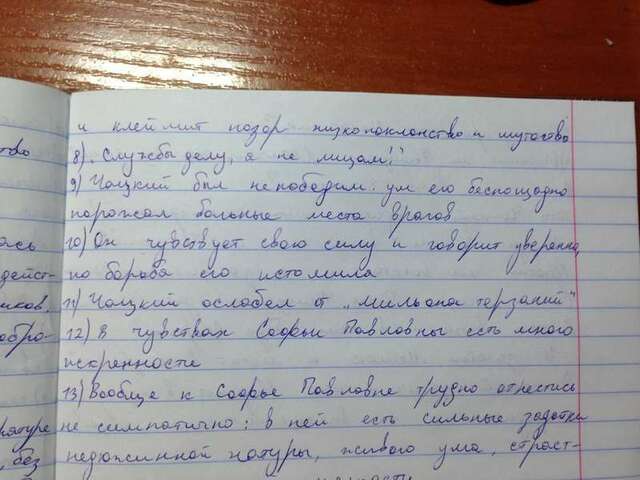 и клеймит позор низкопоклонство и шутовство
тво
8). Службы делу, а не лицам!"
9) Чацкий был непобедим: ум его беспощадно
поражал больные места врагов
10) Он чувствует свою силу и говорит уверенно,
ась
но борьба его истомила
дейст-
11) Чацкий ослабел от „мильона терзаний"
иков,
12) В чувствах Софьи Павловны есть много
обро-
искренности
13) Вообще к Софье Павловне трудно отнестись
не симпатично: в ней есть сильные задатки
ратуре
недюжинной натуры, живого ума, страст-
, без